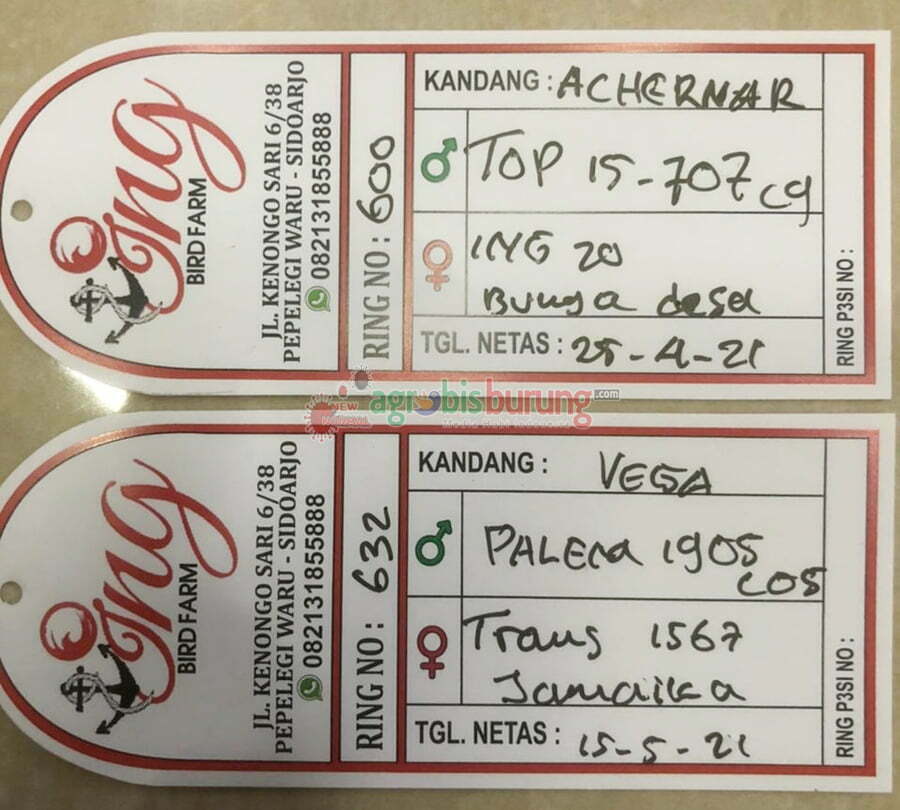 ing
BIRD FARM
JL. KENONGO SARI 6/38
PEPELEGI WARU - SIDOARJO
082131855888
RING NO : 600
KANDANG : ACHERNAR
TOP 15-707 cg
ING 20
Bunga desa
TGL. NETAS : 25-4-21
RING P3SI NO :
NEW
agrobisburung.com
ing
BIRD FARM
JL. KENONGO SARI 6/38
PEPELEGI WARU - SIDOARJO
082131855888
RING NO : 632
KANDANG : VEGA
1905
Trans 1567
Jamaika
TGL. NETAS : 15-5-21
RING P3SI NO :